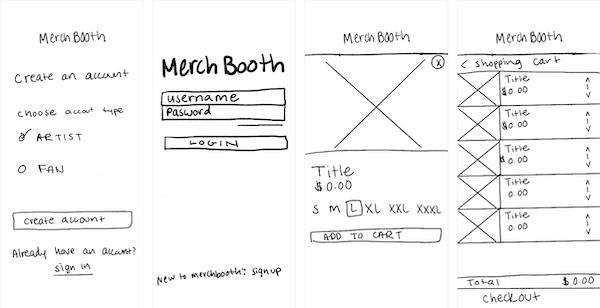 Merch Booth
Create an account
choose accout type
ARTIST
FAN
create account
Already have an account?
sign in
Merch Booth
username
Pasword
LOGIN
New to merchbooth? sign up
Merch Booth
X
Title
$0.00
S M L XL XXL XXXL
ADD TO CART
Merch Booth
< shopping cart
Title
$0.00
1
Title
$0.00
1
Title
$0.00
1
Title
0.00
1
Title
0.00
1
Total $0.00
checkout